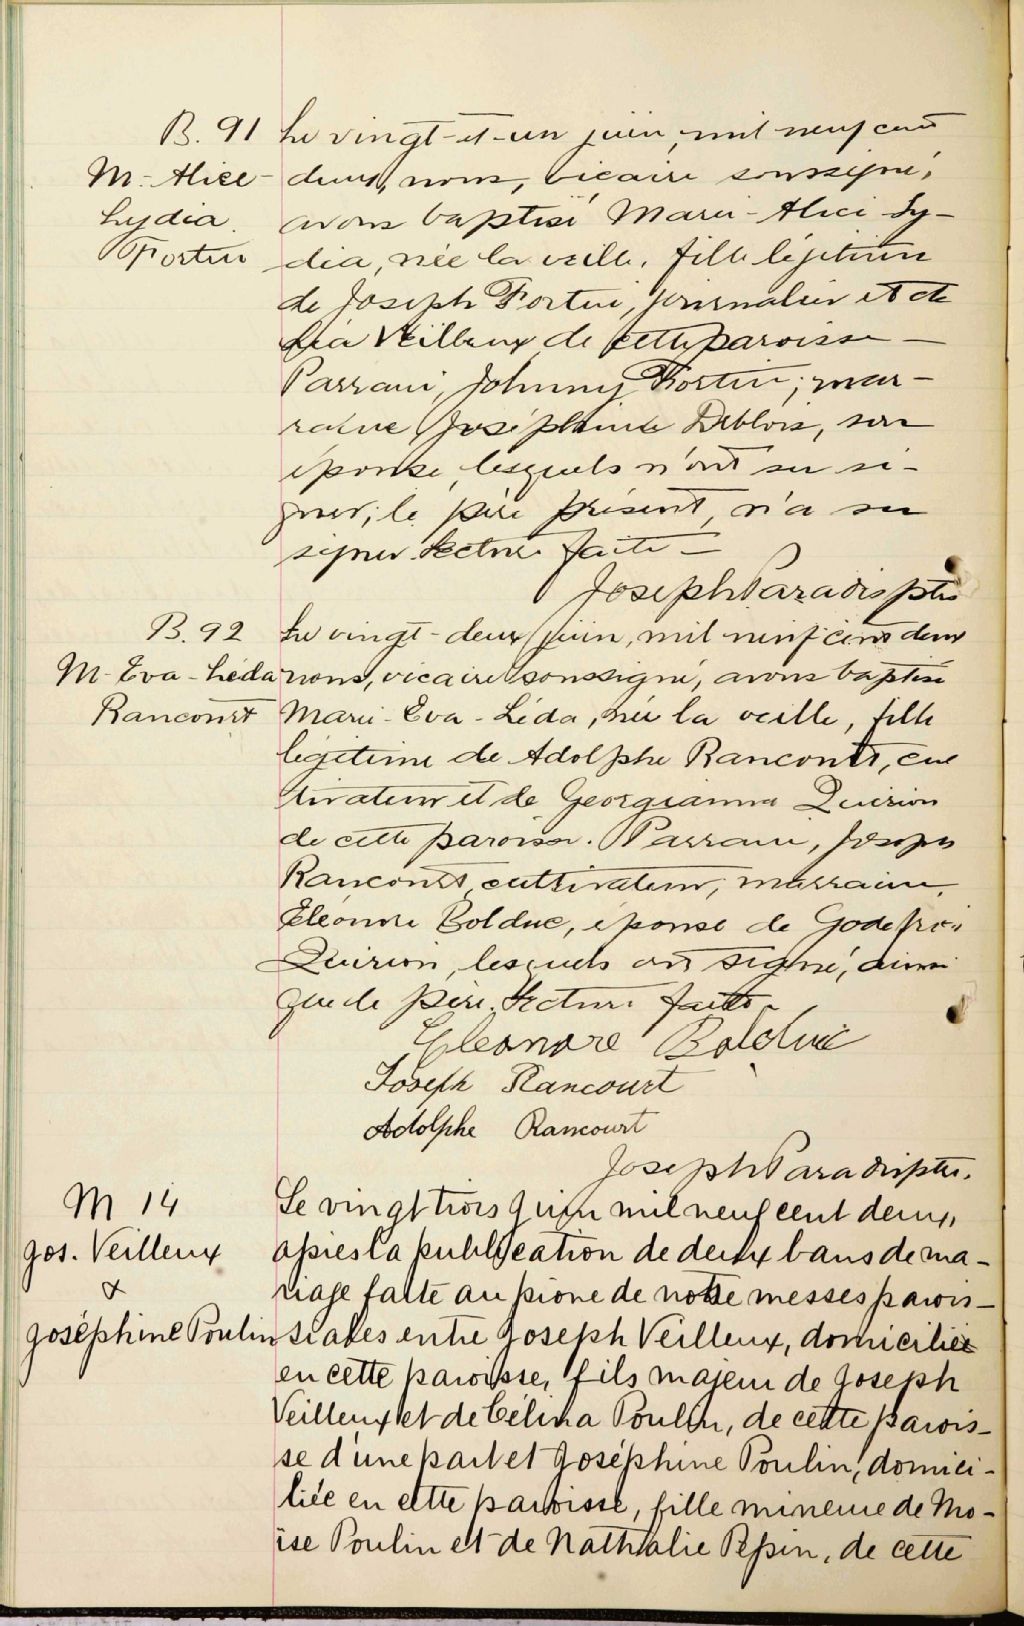 B. 91
M. Alice
Lydia
Fortin
Le vingt-et-un juin, mil neuf cent
deux, nous, vicaire soussigné,
avons baptisé Marie-Alice Ly-
dia, née la veille, fille légitime
de Joseph Fortin, journalier et de
Léa Veilleux de cette paroisse —
Parrain, Johnny Fortin; mar-
raine, Joséphine Deblois, son
épouse, lesquels n'ont su si-
gner; le père présent, n'a su
signer. Lecture faite —
Joseph Paradis ptre
B. 92
M-Eva-Léda
Rancourt
Le vingt-deux juin, mil neuf cent deux
nous, vicaire soussigné, avons baptisé
Marie-Eva-Léda, née la veille, fille
légitime de Adolphe Rancourt, cul
tivateur et de Georgianna Quirion
de cette paroisse. Parrain, Joseph
Rancourt, cultivateur; marraine,
Eléonore Bolduc, épouse de Godefroi
Quirion, lesquels ont signé, ainsi
que le père. Lecture faite.
Eleonore Bolduc
Joseph Rancourt
Adolphe Rancourt
Joseph Paradis ptre.
M 14
Jos. Veilleux
&
Joséphine Poulin
Le vingt trois Juin mil neuf cent deux,
après la publication de deux bans de ma-
riage faite au prône de notre messes parois-
siales entre Joseph Veilleux, domicilié
en cette paroisse, fils majeur de Joseph
Veilleux et de Célina Poulin, de cette parois-
se d'une part et Joséphine Poulin, domici-
liée en cette paroisse, fille mineure de Mo-
ise Poulin et de Nathalie Pépin, de cette